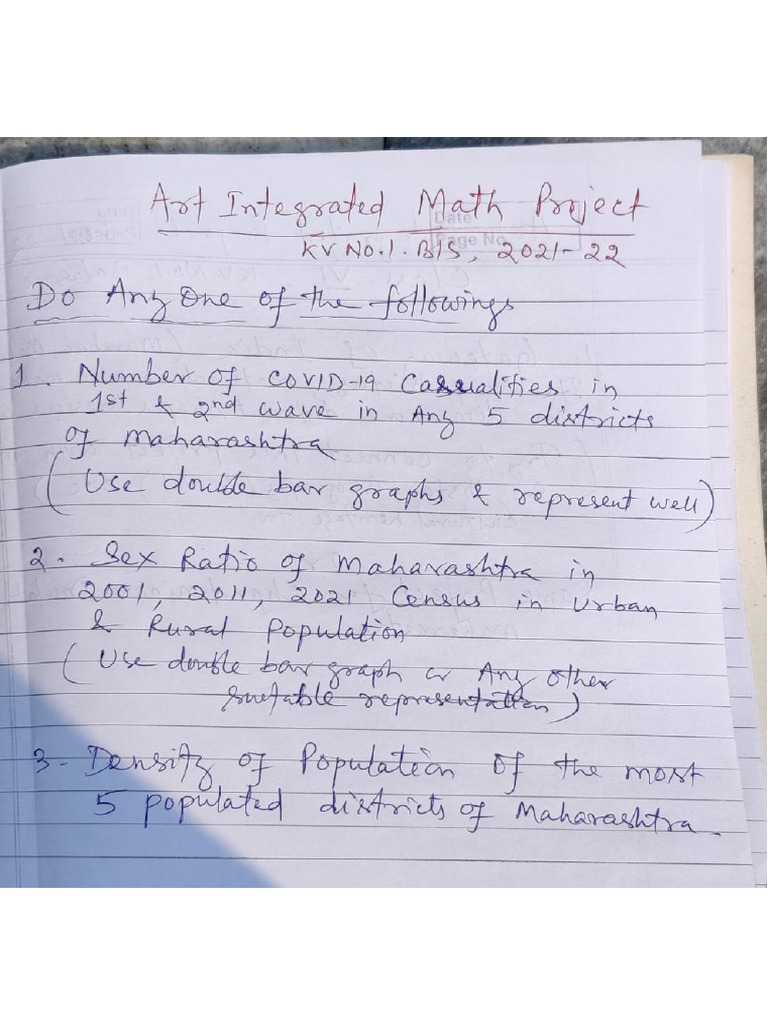 Art Integrated Math Project
Date
Page No.
KV No.1. BLS, 2021-22
Do Any One of the followings
1. Number of COVID-19 Casualities in
1st & 2nd wave in Any 5 districts
of Maharashtra
(Use double bar graphs & represent well)
2. Sex Ratio of Maharashtra in
2001, 2011, 2021 Census in Urban
& Rural Population
(Use double bar graph or Any other
suetable representation)
3- Density of Population of the most
5 populated districts of Maharashtra.